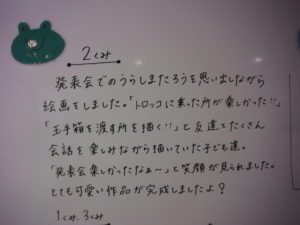 2くみ
発表会でのうらしまたろうを思い出しながら
絵画をしました。「トロッコに乗った所が楽しかった!!」
「玉手箱を渡す所を描く!!」と友達とたくさん
会話を楽しみながら描いていた子ども達。
「発表会楽しかったなぁ〜」と笑顔が見られました。
とても可愛い作品が完成しましたよ?
1くみ、3くみ